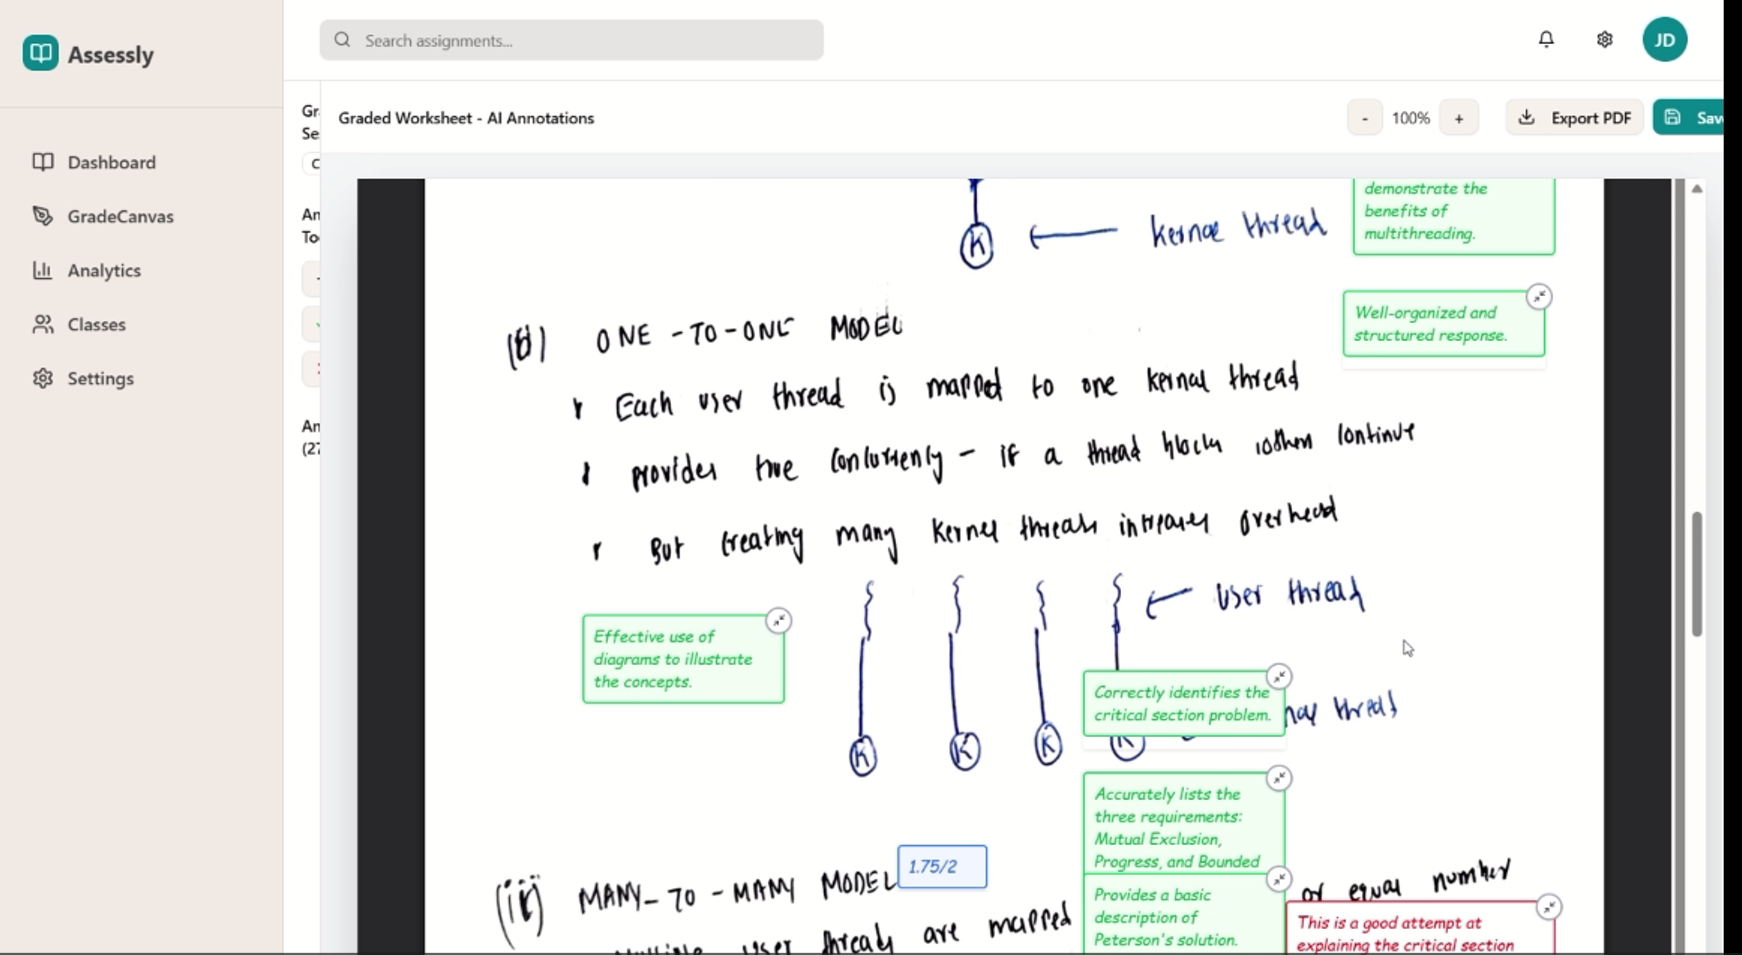 Assessly
Search assignments...
JD
Dashboard
GradeCanvas
Analytics
Classes
Settings
Gr
Se
C
An
To
An
(27
Graded Worksheet - AI Annotations
-
100%
+
Export PDF
Sav
demonstrate the
benefits of
multithreading.
K ← kernal thread
Well-organized and
structured response.
ONE-TO-ONE MODEL
Each user thread is mapped to one kernal thread
provides true concurrency - if a thread blocks continue
But creating many kernel threads increases overhead
← User thread
Effective use of
diagrams to illustrate
the concepts.
Correctly identifies the
critical section problem.
nal thread
K K K K
Accurately lists the
three requirements:
Mutual Exclusion,
Progress, and Bounded
1.75/2
MANY-TO-MANY MODEL
or equal number
Provides a basic
description of
Peterson's solution.
user threads are mapped
This is a good attempt at
explaining the critical section